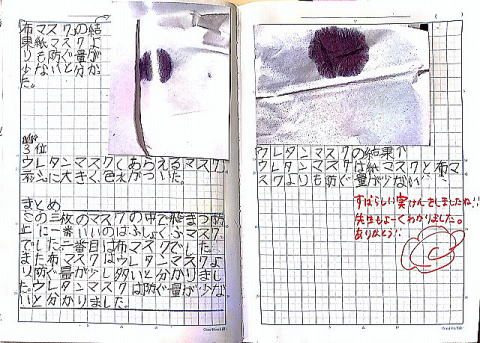 布マスクの結
果紙マスクよ
りも防ぐ量が
少ないと分か
た。
3位
ウレタンマスク(あらえるマスク)
ティシュに大きく色水がついた。
まとめ
この三枚のマスクの中で飛まつ防
止に一番いいのは
マスク
でした二番目は布マスクでした
また布マスクはウレタンマスクよ
り防ぐ量が少し多いと分かりまし
た。ウレタンマスクは防ぐ量が少な
いと分かりました。
ウレタンマスクの結果↑
ウレタンマスクは紙マスクと布マ
スクよりも防ぐ量が少ない
すばらしい実けんをしましたね!!
先生もよーくわかりました。
ありがとう!!